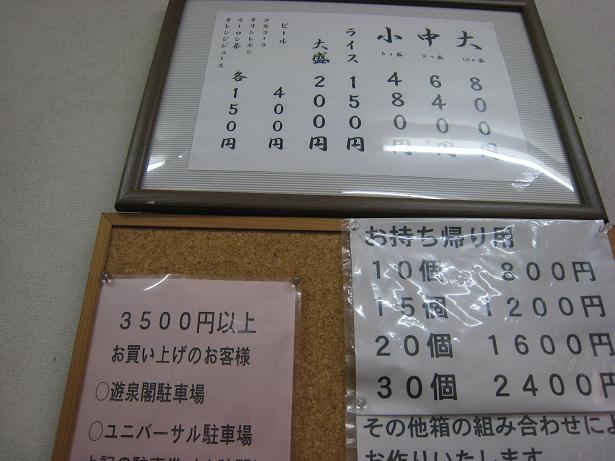 大 10ヶ盛 800円
中 8ヶ盛 640円
小 6ヶ盛 480円
ライス 150円
大盛 200円
ビール 400円
コカコーラ
キリンレモン
ウーロン茶 各150円
オレンジジュース
お持ち帰り用
10個 800円
15個 1200円
20個 1600円
30個 2400円
その他箱の組み合わせによ
お作りいたします
3500円以上
お買い上げのお客様
○遊泉閣駐車場
○ユニバーサル駐車場